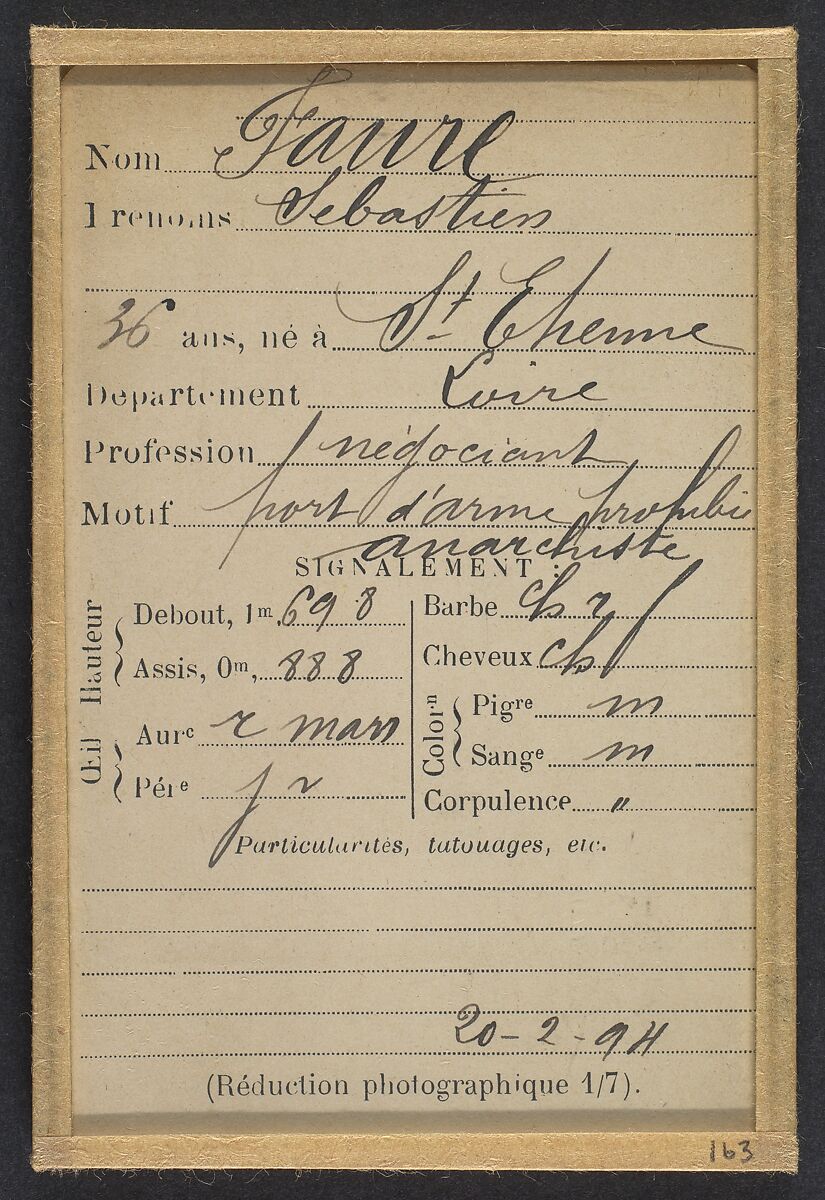 Nom Faure
Prénoms Sébastien
36 ans, né à St Etienne
Département Loire
Profession négociant
Motif port d'arme prohibé
anarchiste
SIGNALEMENT :
Hauteur
Debout, 1m,69 8
Assis, 0m, 88 8
Œil
Aurc r marr
Périe
Barbe ch r
Cheveux ch
Colorn
Pigre m
Sange m
Corpulence "
Particularités, tatouages, etc.
20-2-94
(Réduction photographique 1/7).
163